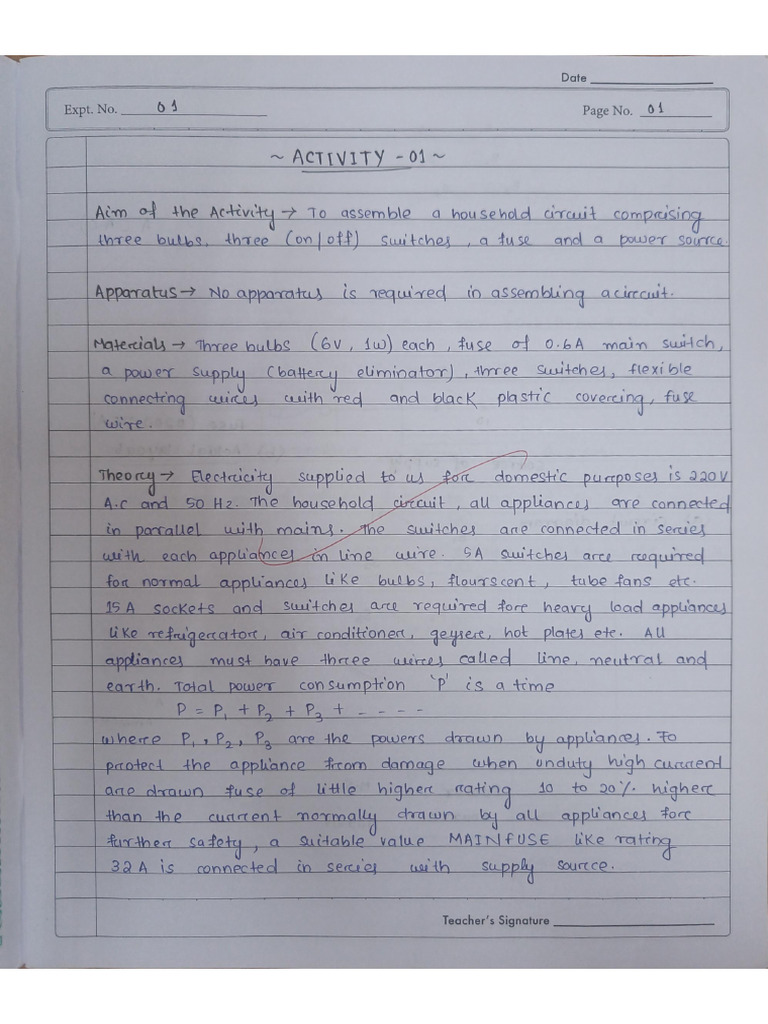 Date
Expt. No. 01
Page No. 01
~ ACTIVITY - 01 ~
Aim of the Activity → To assemble a household circuit comprising
three bulbs, three (on/off) switches, a fuse and a power source.
Apparatus → No apparatus is required in assembling a circuit.
Materials → Three bulbs (6V, 1W) each, fuse of 0.6A main switch,
a power supply (battery eliminator), three switches, flexible
connecting wires with red and black plastic covering, fuse
wire.
Theory → Electricity supplied to us for domestic purposes is 220V
A.C and 50 Hz. The household circuit, all appliances are connected
in parallel with mains. The switches are connected in series
with each appliances in line wire. 5A switches are required
for normal appliances like bulbs, flourscent, tube fans etc.
15 A sockets and switches are required fore heavy load appliances
like refrigerator, air conditioner, geysere, hot plates etc. All
appliances must have three wires called line, neutral and
earth. Total power consumption 'P' is a time
P = P1 + P2 + P3 + - - - -
where P1, P2, P3 are the powers drawn by appliances. To
protect the appliance from damage when unduty high current
are drawn fuse of little higher rating 10 to 20% higher
than the current normally drawn by all appliances fore
further safety, a suitable value MAINFUSE like rating
32 A is connected in series with supply source.
Teacher's Signature